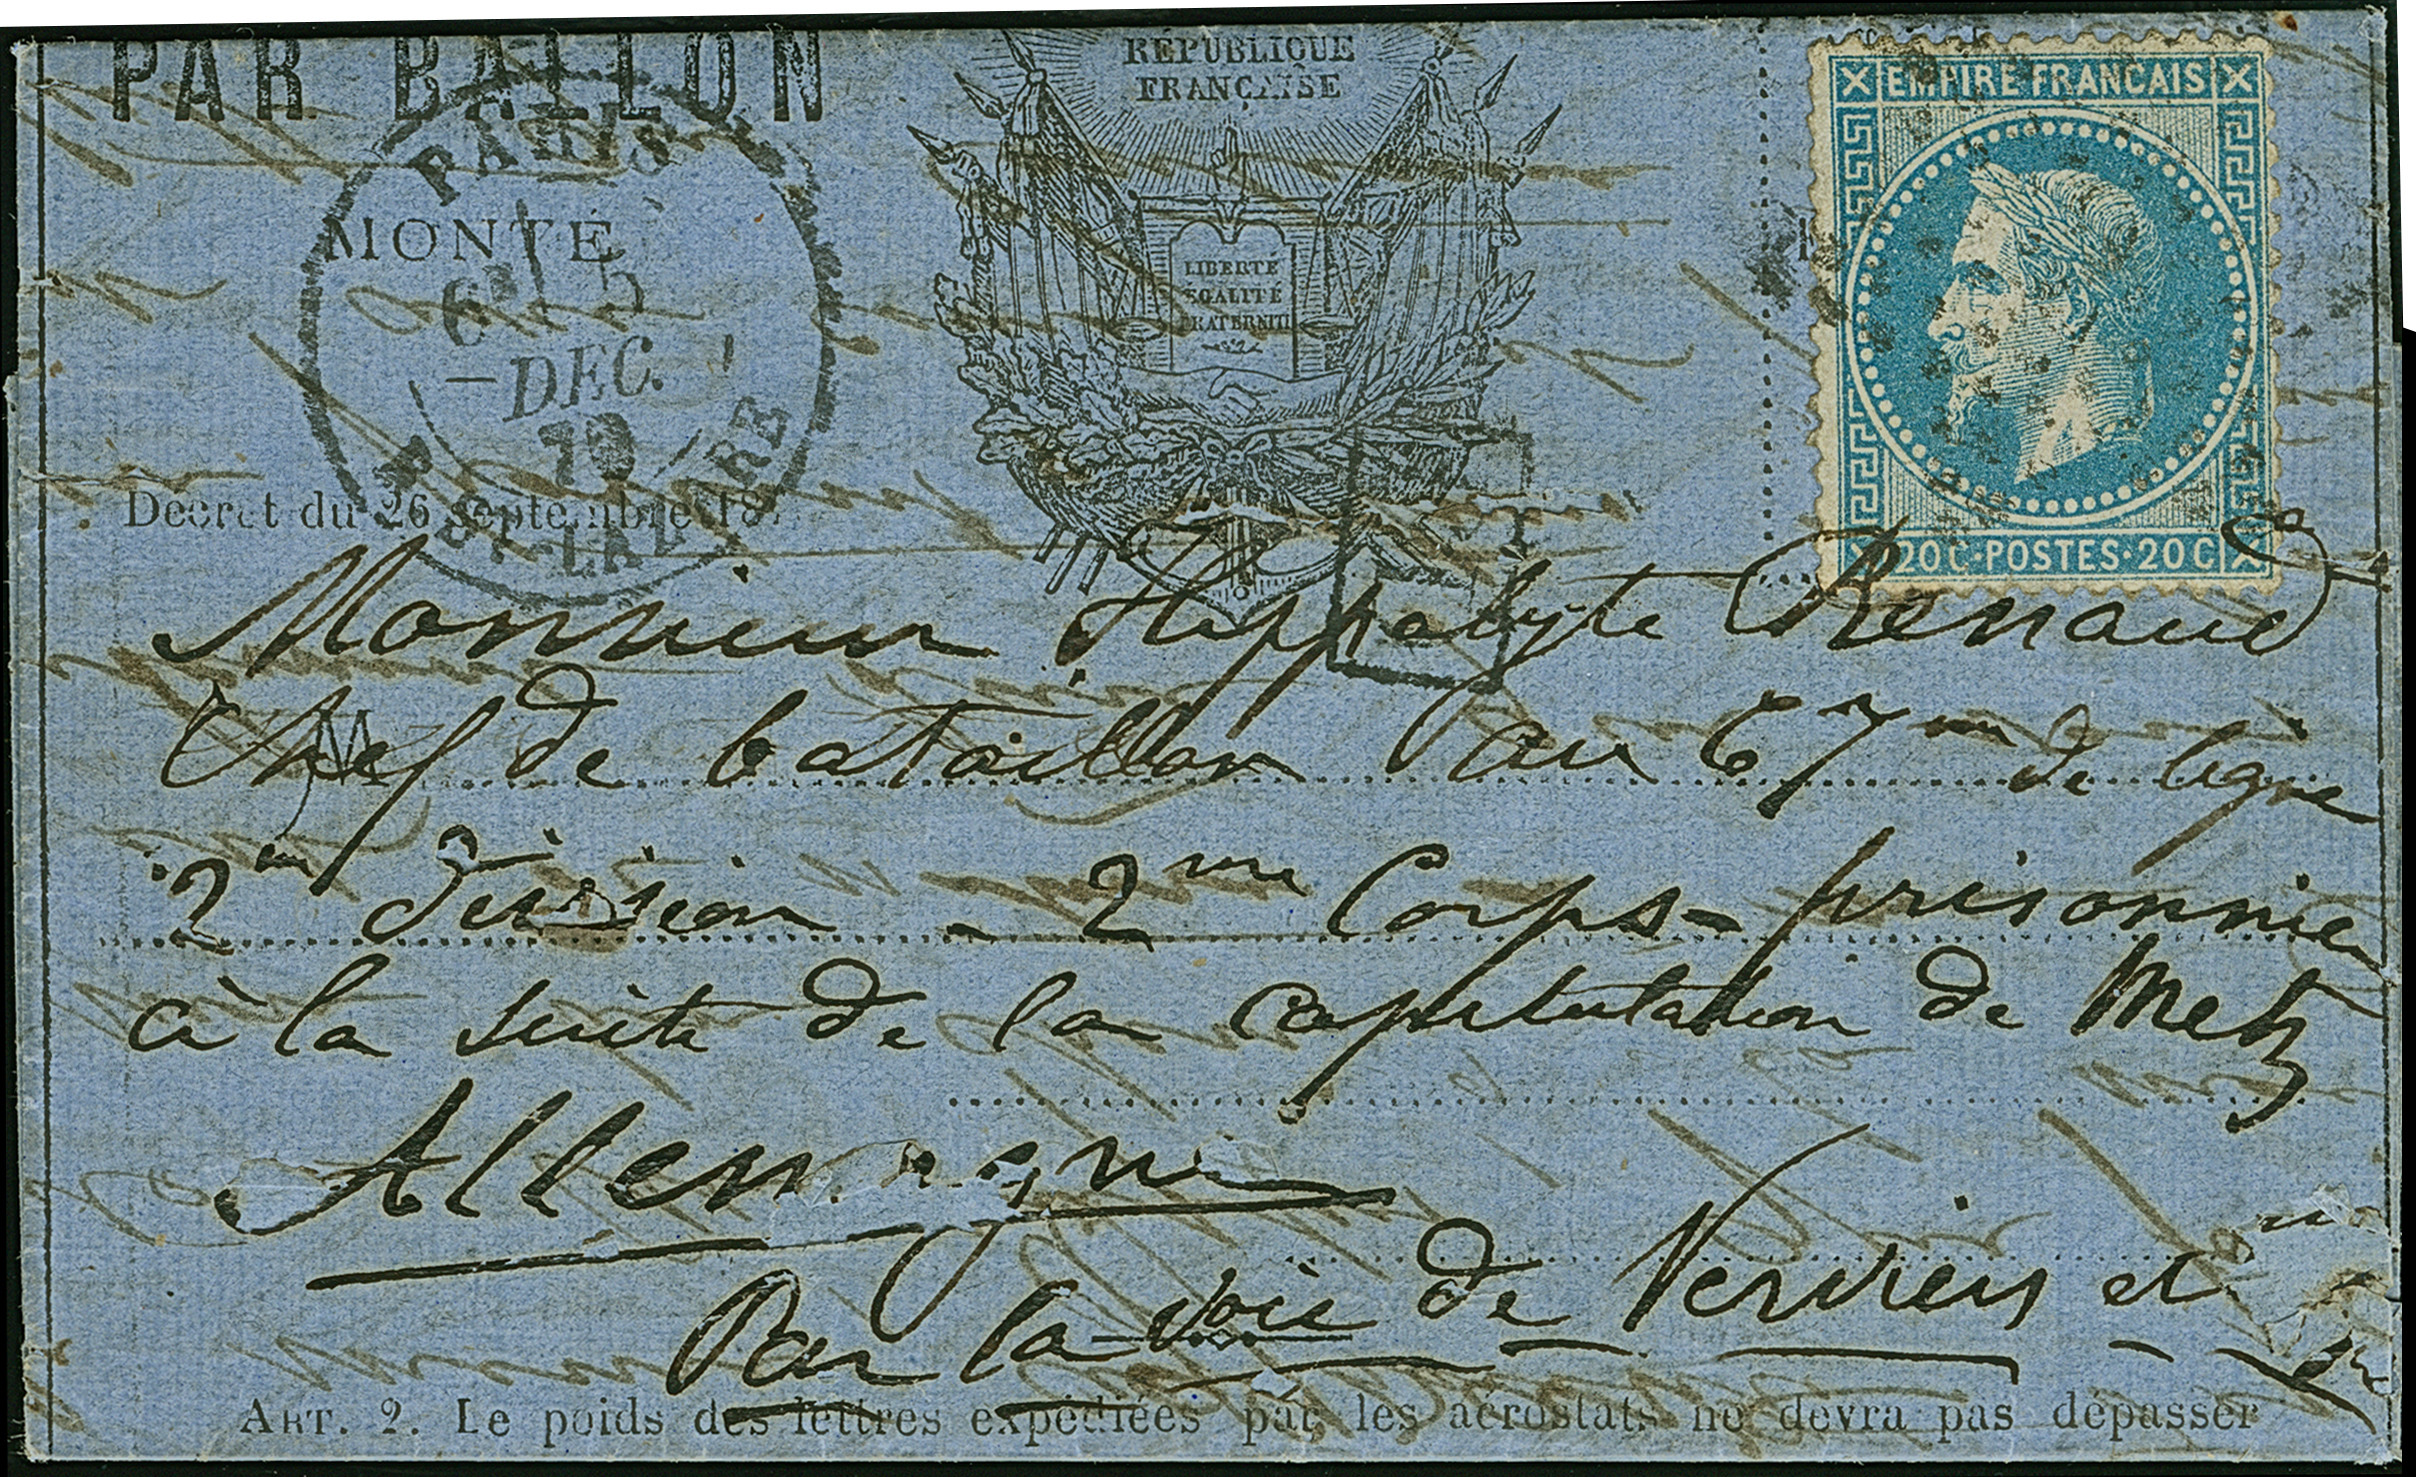 PAR BALLON
RÉPUBLIQUE
FRANÇAISE
EMPIRE FRANCAIS
PARIS
MONTÉ
6E 5
DEC.
70
R. ST-LAZARE
LIBERTÉ
EGALITÉ
FRATERNITÉ
20C·POSTES·20C
Décret du 26 septembre 187
Monsieur Hippolyte Renaud
M
Chef de bataillon au 67me de ligne
2me division - 2me Corps - prisonnier
à la suite de la capitulation de Metz
Allemagne
Par la voie de Verviers et
ART. 2. Le poids des lettres expédiées par les aérostats ne devra pas dépasser